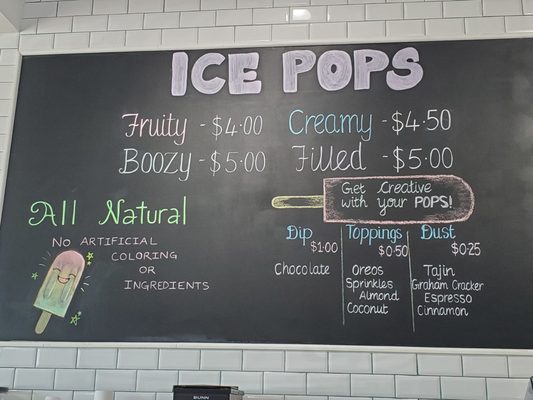 ICE POPS
Fruity - $4.00
Creamy - $4.50
Boozy - $5.00
Filled - $5.00
Get Creative
with your POPS!
All Natural
No ARTIFICIAL
COLORING
OR
INGREDIENTS
Dip
$1.00
Chocolate
Toppings
$0.50
Oreos
Sprinkles
Almond
Coconut
Dust
$0.25
Tajin
Graham Cracker
Espresso
Cinnamon
BUNN